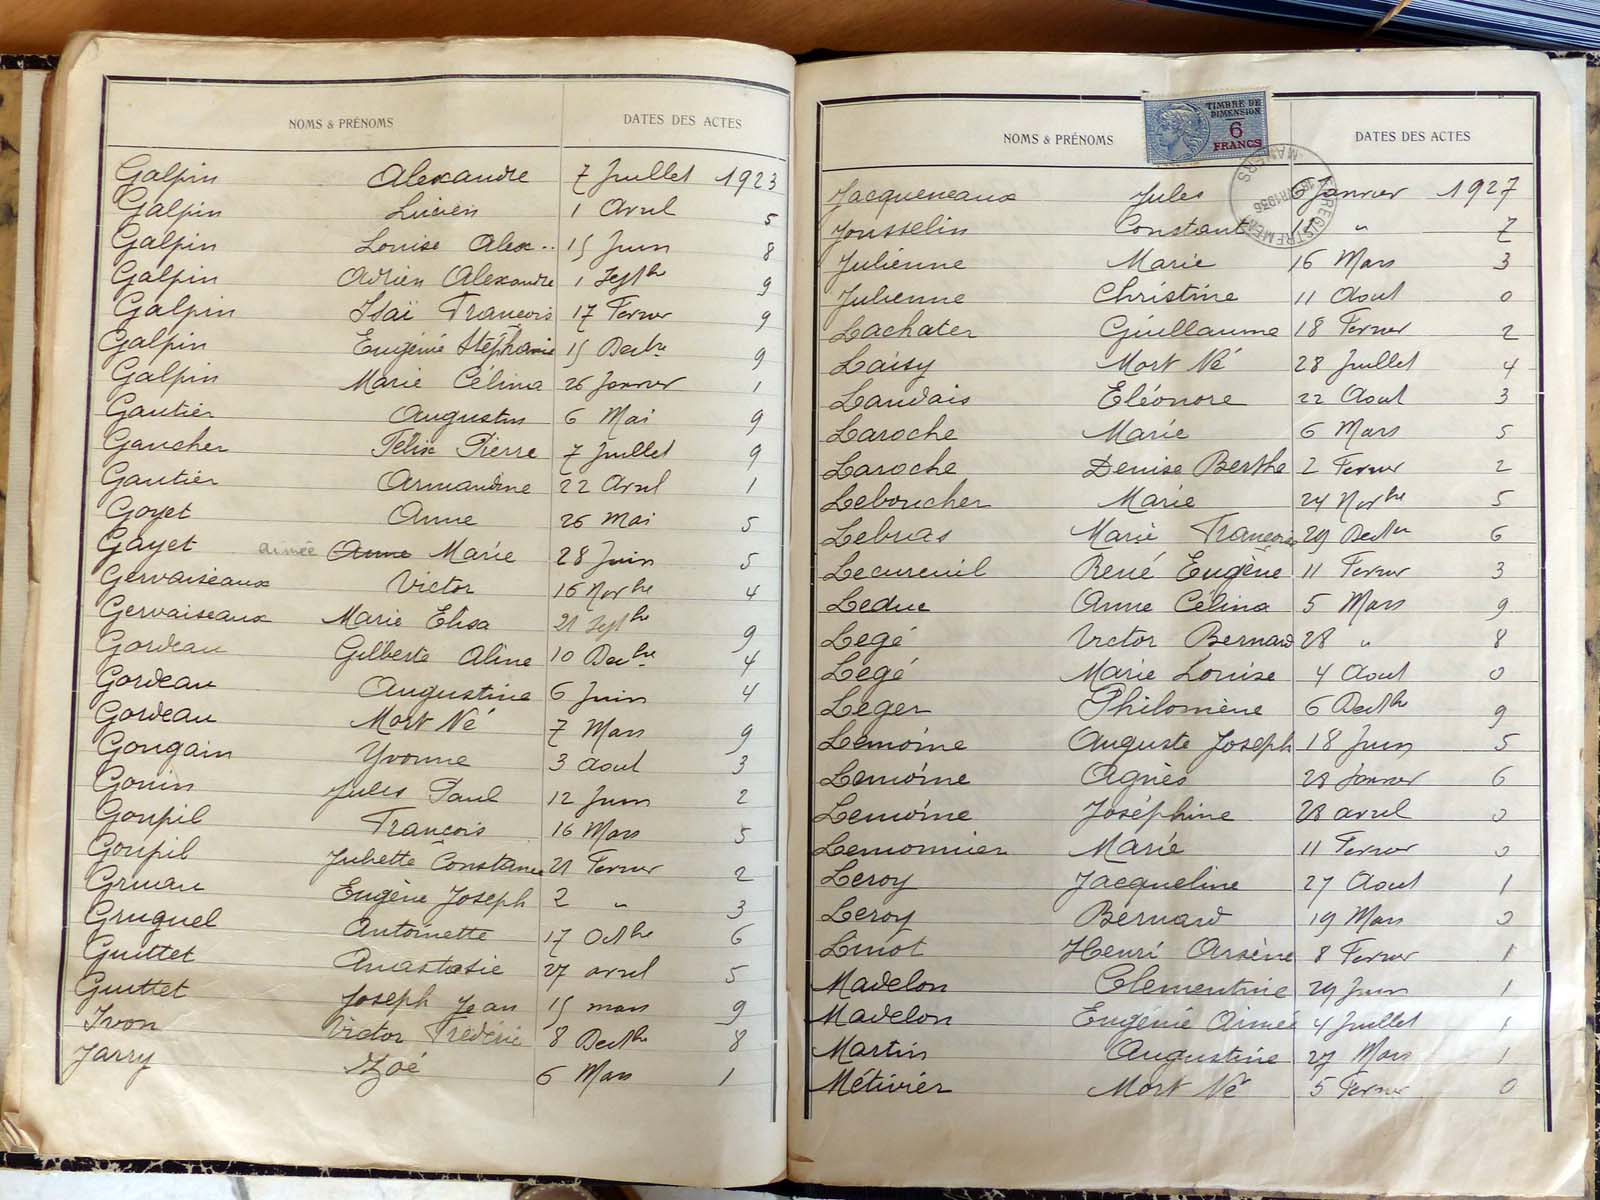 NOMS & PRÉNOMS DATES DES ACTES
Galpin Alexandre 7 Juillet 1923
Galpin Lucien 1 Avril 5
Galpin Louise Alex.. 15 Juin 8
Galpin Adrien Alexandre 1 Septbre 9
Galpin Isaï François 17 Fevrier 9
Galpin Eugénie Stéphanie 15 Decbre 9
Galpin Marie Célina 26 Janvier 1
Gautier Augustin 6 Mai 9
Gaucher Félix Pierre 7 Juillet 9
Gautier Armandine 22 Avril 1
Goyet Anne 26 Mai 5
Gayet aimée Anne Marie 28 Juin 5
Gervaiseaux Victor 16 Novbre 4
Gervaiseaux Marie Elisa 21 Septbre 9
Gordeau Gilberte Aline 10 Decbre 4
Gordeau Augustine 6 Juin 4
Gordeau Mort Né 7 Mars 9
Gougain Yvonne 3 Aout 3
Gouin Jules Paul 12 Juin 2
Goupil François 16 Mars 5
Goupil Juliette Constance 21 Fevrier 2
Gruau Eugène Joseph 2 " 3
Gruguel Antoinette 17 Octbre 6
Guittet Anastasie 27 avril 5
Guittet Joseph Jean 15 mars 9
Ivon Victor Frédéric 8 Decbre 8
Jarry Zoé 6 Mars 1
TIMBRE DE DIMENSION
6
FRANCS
NOMS & PRÉNOMS DATES DES ACTES
ENREGISTREMENT MAMERS 1936
Jacqueneaux Jules Janvier 1927
Jousselin Constant " 7
Julienne Marie 16 Mars 3
Julienne Christine 11 Aout 0
Lachater Guillaume 18 Fevrier 2
Laisy Mort Né 28 Juillet 4
Landais Eléonore 22 Aout 3
Laroche Marie 6 Mars 5
Laroche Denise Berthe 2 Fevrier 2
Leboucher Marie 24 Novbre 5
Lebras Marie Françoise 29 Decbre 6
Lecureuil René Eugène 11 Fevrier 3
Leduc Anne Célina 5 Mars 9
Legé Victor Bernard 28 " 8
Legé Marie Louise 4 Aout 0
Leger Philomène 6 Decbre 9
Lemoine Auguste Joseph 18 Juin 5
Lemoine Agnès 28 Janvier 6
Lemoine Joséphine 28 avril 0
Lemonnier Marie 11 Fevrier 0
Leroy Jacqueline 27 Aout 1
Leroy Bernard 19 Mars 0
Linot Henri Arsène 8 Fevrier 1
Madelon Clementine 29 Juin 1
Madelon Eugénie Aimée 4 Juillet 1
Martin Augustine 27 Mars 1
Métivier Mort Né 5 Fevrier 0